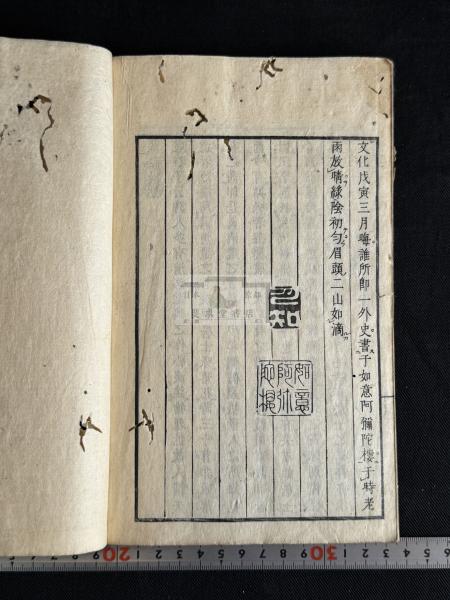 文化戊寅三月晦誰所即一外史書于如意阿彌陀樓于時老
雨放晴緑陰初匀眉頭二山如滴
如意
阿弥
20
30